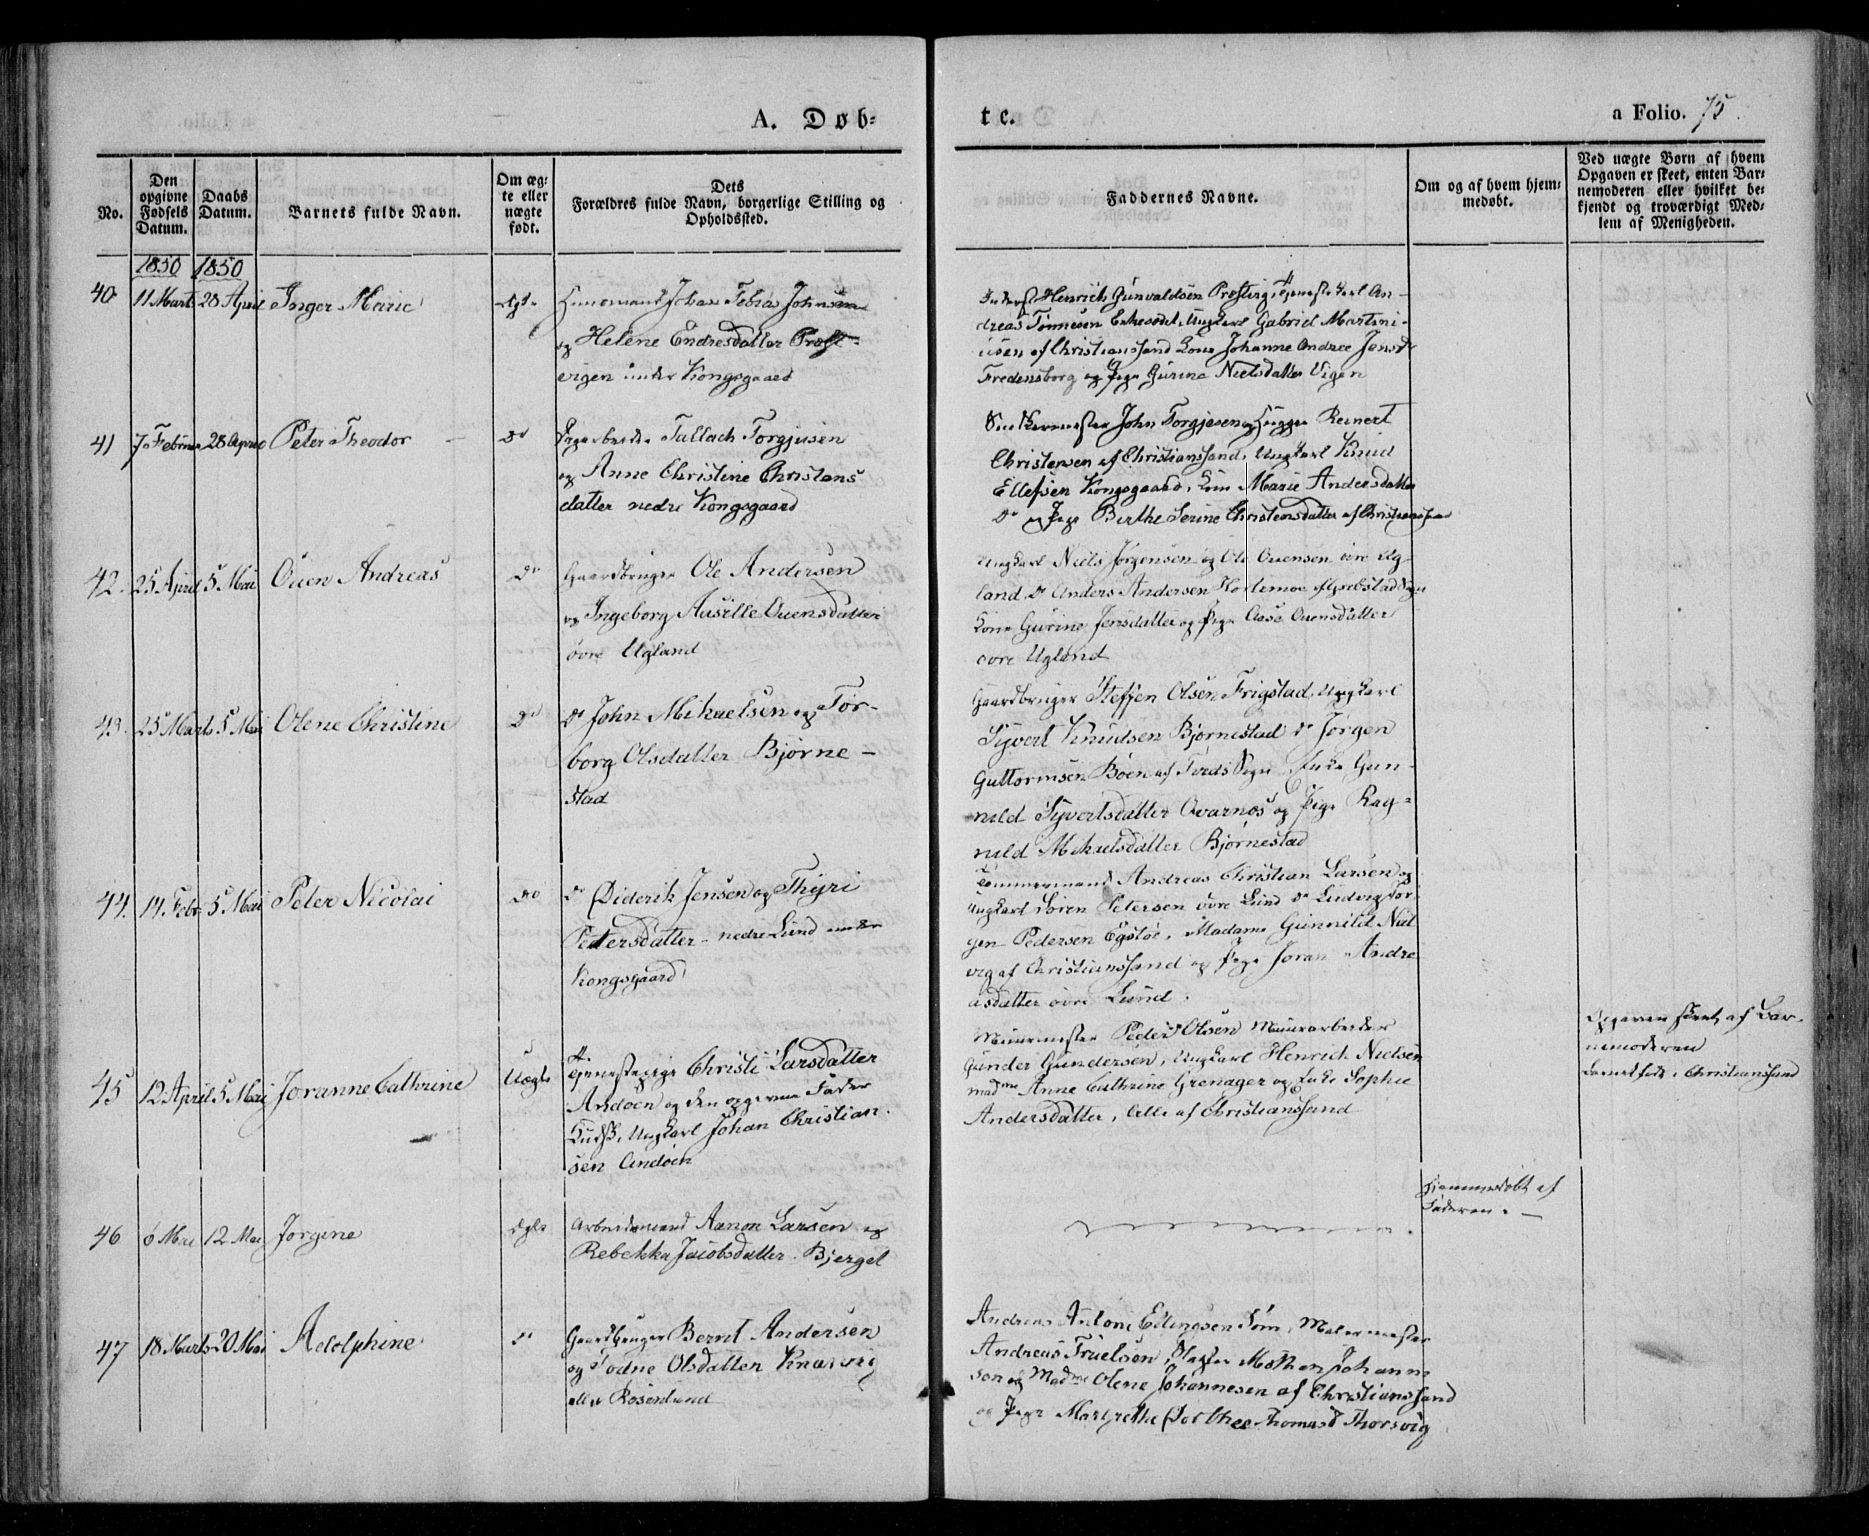 A. Døb-
te.
a Folio. 75.
No.
Den opgivne Fødsels Datum.
Daabs Datum.
Barnets fulde Navn.
Om ægte eller uægte født.
Dets
Forældres fulde Navn, borgerlige Stilling og
Opholdssted.
Faddernes Navne.
Om og af hvem hjem-
medøbt.
Ved uægte Børn af hvem
Opgaven er skeet, enten Bar-
nemoderen eller hvilket be-
kjendt og troværdigt Med-
lem af Menigheden.
1850 1850
40 11 Marts 28 April Inger Marie Ægte
Johan Tobias Johnsen
og Helene Endresdatter Præst-
vigen under Kongsgaard
Inderst Henrich Gunvaldsen Præstvig, Tjeneste Karl An-
dreas Tønnesen Ungkarl Gabriel Martini-
usen af Christianssand Kone Johanne Andrea Jensd
Fredensborg og Pige Gurine Nielsdatter Vigen
41 7 Februar 28 April Peter Theodor Do
Tallach Torgjusen
og Anne Christine Christens
datter nedre Kongsgaard
John Torgjesen Reinert
Christensen af Christianssand, Ungkarl Knud
Ellefsen Kongsgaard, Kone Marie Andersdatter
Do og Pige Birthe Serine Christensdatter af Christianssand
42. 25 April 5 Mai Ouen Andreas Do
Gaardbruger Ole Andersen
og Ingeborg Ausille Ouensdatter
øvre Ugland
Ungkarl Niels Jørgensen og Ole Ouensen øvre Ug-
land Do Anders Andersen
Kone Gurine Jensdatter og Pige Aase Ouensdatter
øvre Ugland
43. 25 Marts 5 Mai Olene Christine Do
Do John Mikaelsen og Tor-
borg Olsdatter Bjørne-
stad
Gaardbruger Steffen Olsen Frigstad, Ungkarl
Syvert Knudsen Bjørnestad Do Jørgen
Guttormsen Boen af Tveds Sogn Enke Gun-
nild Syvertsdatter Qvarnes og Pige Rag-
nild Mikaelsdatter Bjørnestad
44. 14 Febr. 5 Mai Peter Nicolai Do
Do Diderik Jensen og Thyri
Pedersdatter nedre Lund under
Kongsgaard
Tømmermand Andreas Christian Larsen og
Ungkarl Søren Petersen øvre Lund Do Ludvig Jør-
gen Pedersen Egstøe, Madame Gunnild
vig af Christianssand og Pige Joran Andre
asdatter øvre Lund.
45 12 April 5 Mai Joranne Cathrine Uægte
Tjenestepige Christi Larsdatter
Andøen og den opgivne Fader
Kudsk, Ungkarl Johan Christian-
sen Andøen
Muurmester Peder Olsen Muurarbeider
Gunder Gundersen, Ungkarl Henrich Nielsen
madme Anne Cathrine Grenager og Enke Sophie
Andersdatter, Alle af Christianssand
Opgaven skeet af Bar-
nemoderen
Barnet født i Christianssand
46 6 Mai 12 Mai Jørgine Ægte
Arbeidsmand Aanon Larsen og
Rebekka Jacobsdatter Bjerget
hjemmedøbt af
Faderen.
47 18 Marts 20 Mai Adolphine Do
Gaardbruger Bernt Andersen
og Todne Olsdatter Knarvig
eller Rosenlund
Andreas Antoni Ellingsen Søm, Malermester
Andreas Truelsen, Johanne
sen og Madme Olene Johannesen af Christianssand
og Pige Margrethe Dorthea Thomasd Thorsvig